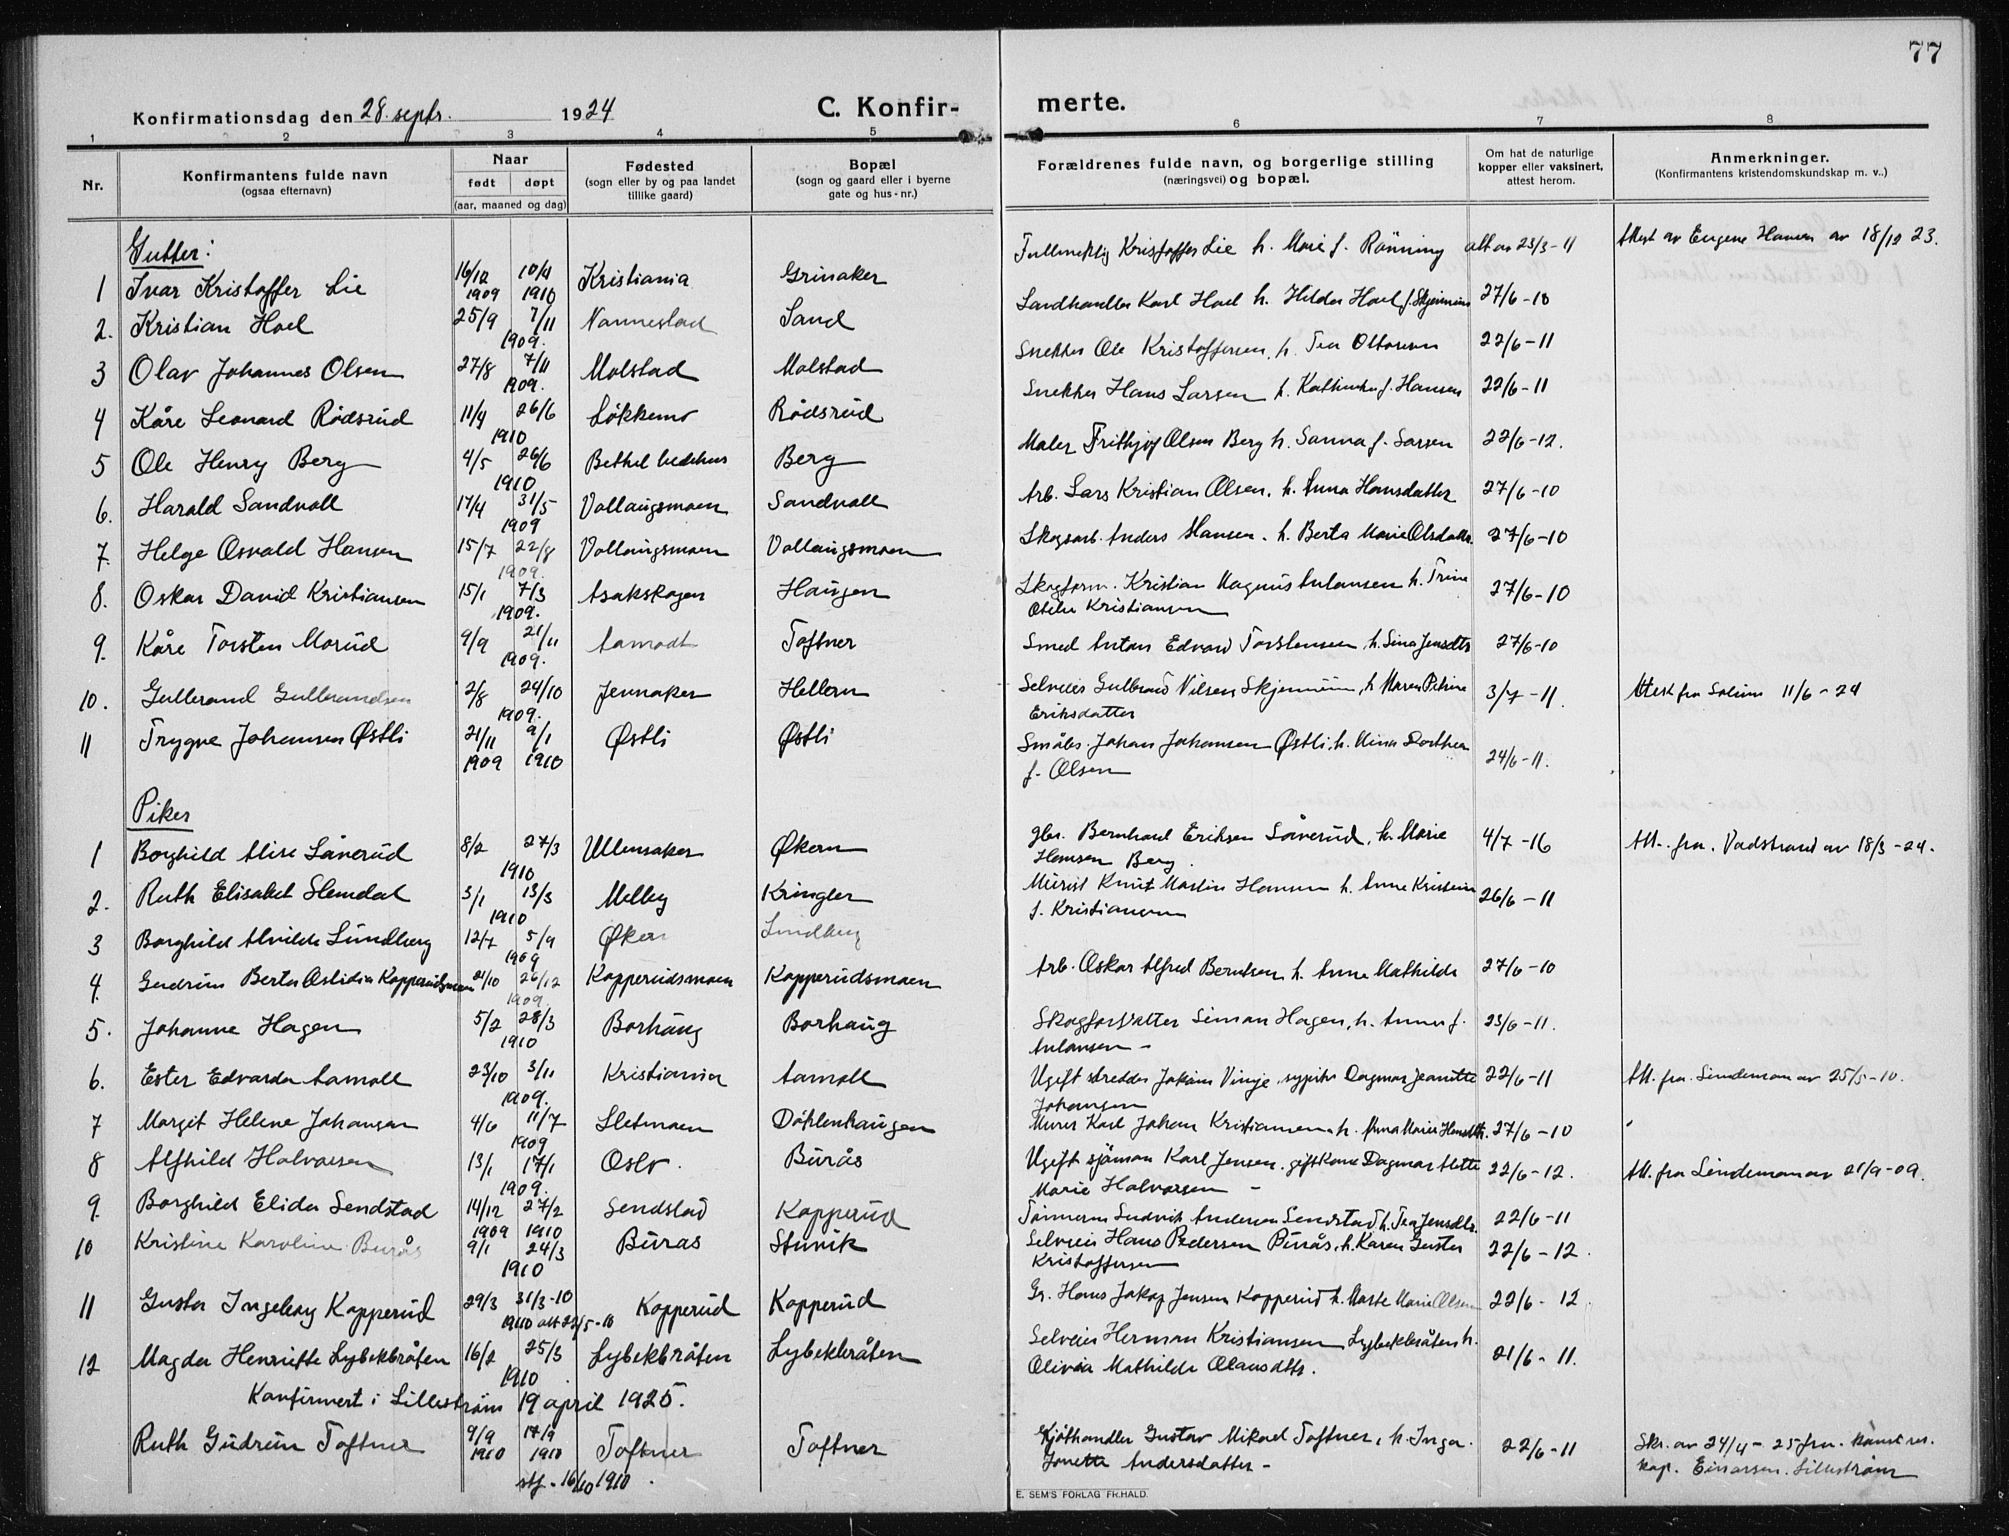 77
Konfirmationsdag den 28. septr. 1924
C. Konfir-
merte.
1 2 3 4 5 6 7 8
Nr.
Konfirmantens fulde navn
(ogsaa efternavn)
Naar
født døpt
(aar, maaned og dag)
Fødested
(sogn eller by og paa landet
tillike gaard)
Bopæl
(sogn og gaard eller i byerne
gate og hus-nr.)
Forældrenes fulde navn, og borgerlige stilling
(næringsvei) og bopæl.
Om hat de naturlige
kopper eller vaksinert,
attest herom.
Anmerkninger.
(Konfirmantens kristendomskundskap m. v..)
Gutter:
1 Ivar Kristoffer Lie 16/12 1909 10/4 1910 Kristiania Grinaker Fullmektig Kristoffer Lie h. Marie f. Rönning att av 23/3-11 Attest av Eugene Hansen av 18/12 23.
2. Kristian Hoel 25/9 7/11 1909. Nannestad Sand Landhandler Karl Hoel h. Hilda Hoel f. Skjennum 27/6-10
3 Olav Johannes Olsen 27/8 7/11 1909. Molstad Molstad Snekker Ole Kristoffersen, h. Tea Ottersen 22/6-11
4 Kåre Leonard Rødsrud 11/4 26/6 1910 Løkkemo Rødsrud Snekker Hans Larsen h. Kathinka f. Hansen 22/6-11
5 Ole Henry Berg 4/5 26/6 1910 Bethel bedehus Berg Maler Frithjof Olsen Berg h. Sanna f. Larsen 22/6-12.
6. Harald Sandvoll 17/4 31/5 1909 Vollaugsmoen Sandvoll Arb. Lars Kristian Olsen. h. Anna Hansdatter 27/6-10
7. Helge Osvald Hansen 15/7 22/8 1909. Vollaugsmoen Vollaugsmoen Skogsarb. Anders Hansen. h. Berta Marie Olsdattr. 27/6-10
8. Oskar David Kristiansen 15/1 7/3 1909. Asakskogen Haugen Skogform. Kristian Magnus Anlansen h. Trine
Otilie Kristiansen 27/6-10
9. Kåre Torsten Morud 9/9 21/11 1909. Aamodt Toftner Smed Anton Edvard Torstensen, h. Lina Jensdtr 27/6-10
10. Gulbrand Gulbrandsen 2/8 24/10 1909. Jennaker Hellern Selveier Gulbrand Nilsen Skjennum, h Maren Petrine
Eriksdatter 3/7-11. Attest fra Solum 11/6-24
11 Trygve Johansen Østli 21/11 1909 9/1 1910 Østli Østli Småbr. Johan Johansen Østli, h. Mina Dorthea
f. Olsen 24/6-11.
Piker
1 Borghild Alise Låverud 8/2 27/3 1910 Ullensaker Økern gbr. Bernhard Eriksen Såverud, h. Marie
Hansen Berg. 4/7-16 Att. fra. Vadstrand av 18/3-24.
2. Ruth Elisabet Slemdal 3/1 13/3 1910 Melby Kringler Murist Knut Martin Hansen h. Anne Kristine
f. Kristiansen 26/6-11
3 Borghild Alvilde Lundberg 12/7 5/9 1909 Økern Lundberg
4. Gudrun Berta Oslidia Kopperudsmoen 21/10 26/12 1909. Kopperudsmoen Kopperudsmoen Arb. Oskar Alfred Berntsen h. Anna Mathilde 27/6-10
5. Johanne Hagen 5/2 28/3 1910 Borhaug Borhaug Skogforvalter Simon Hagen, h. Anna f.
Anlansen - 23/6-11.
6. Ester Edvarda Aamoll 23/10 3/11 1909. Kristiania Aamoll Ugift skredder Jokum Vinje, sypike Dagmar Jeanette
Johansen 22/6-11 Att. fra. Lindeman av 25/5-10.
7 Margit Helene Johansen 4/6 11/7 1909 Sletmoen Döhlenhaugen Murer Karl Johan Kristiansen h. Anna Marie Hansdtr. 27/6-10
8 Alfhild Halvorsen 13/1 17/1 1909. Oslo. Burås Ugift sjömann Karl Jensen. gift kone Dagmar Alette
Marie Halvorsen - 22/6-12. Att. fra Lindeman av 21/9-09.
9. Borghild Elida Sendstad 14/12 1909 27/2 1910 Sendstad Kopperud Tömmerm Ludvik Andersen Sendstad h. Tea Jensdtr. 22/6-11
10 Kristine Karoline Burås 9/1 24/3 1910 Buras Stuvik Selveier Hans Pedersen Burås, h. Karen Gusta
Kristoffersen 22/6-12.
11 Gusta Ingeborg Kopperud 29/3 31/3-10 1910 att 22/5-10 Kopperud Kopperud Gr. Hans Jakop Jensen Kopperud h. Marte Marie Olsen 22/6-12
12 Magda Henriette Lybekbråten 16/2 25/3 1910. Lybekbråten Lybekbråten Selveier Herman Kristiansen Lybekbråten h.
Olivia Mathilde Olausdtr. 21/6-11.
Konfirmert i Lillestrøm 19 april 1925.
Ruth Gudrun Toftner 9/9 1910 17/9 1910 Toftner Toftner Kjöthandler Gustav Mikael Toftner, h. Inga
Jonette Andersdatter - 22/6-11 Skr. av 24/4-25 fra. konst res.
kap. Einarsen. Lillestrøm
stf. 16/10 1910.
E. SEM'S FORLAG FR.HALD.